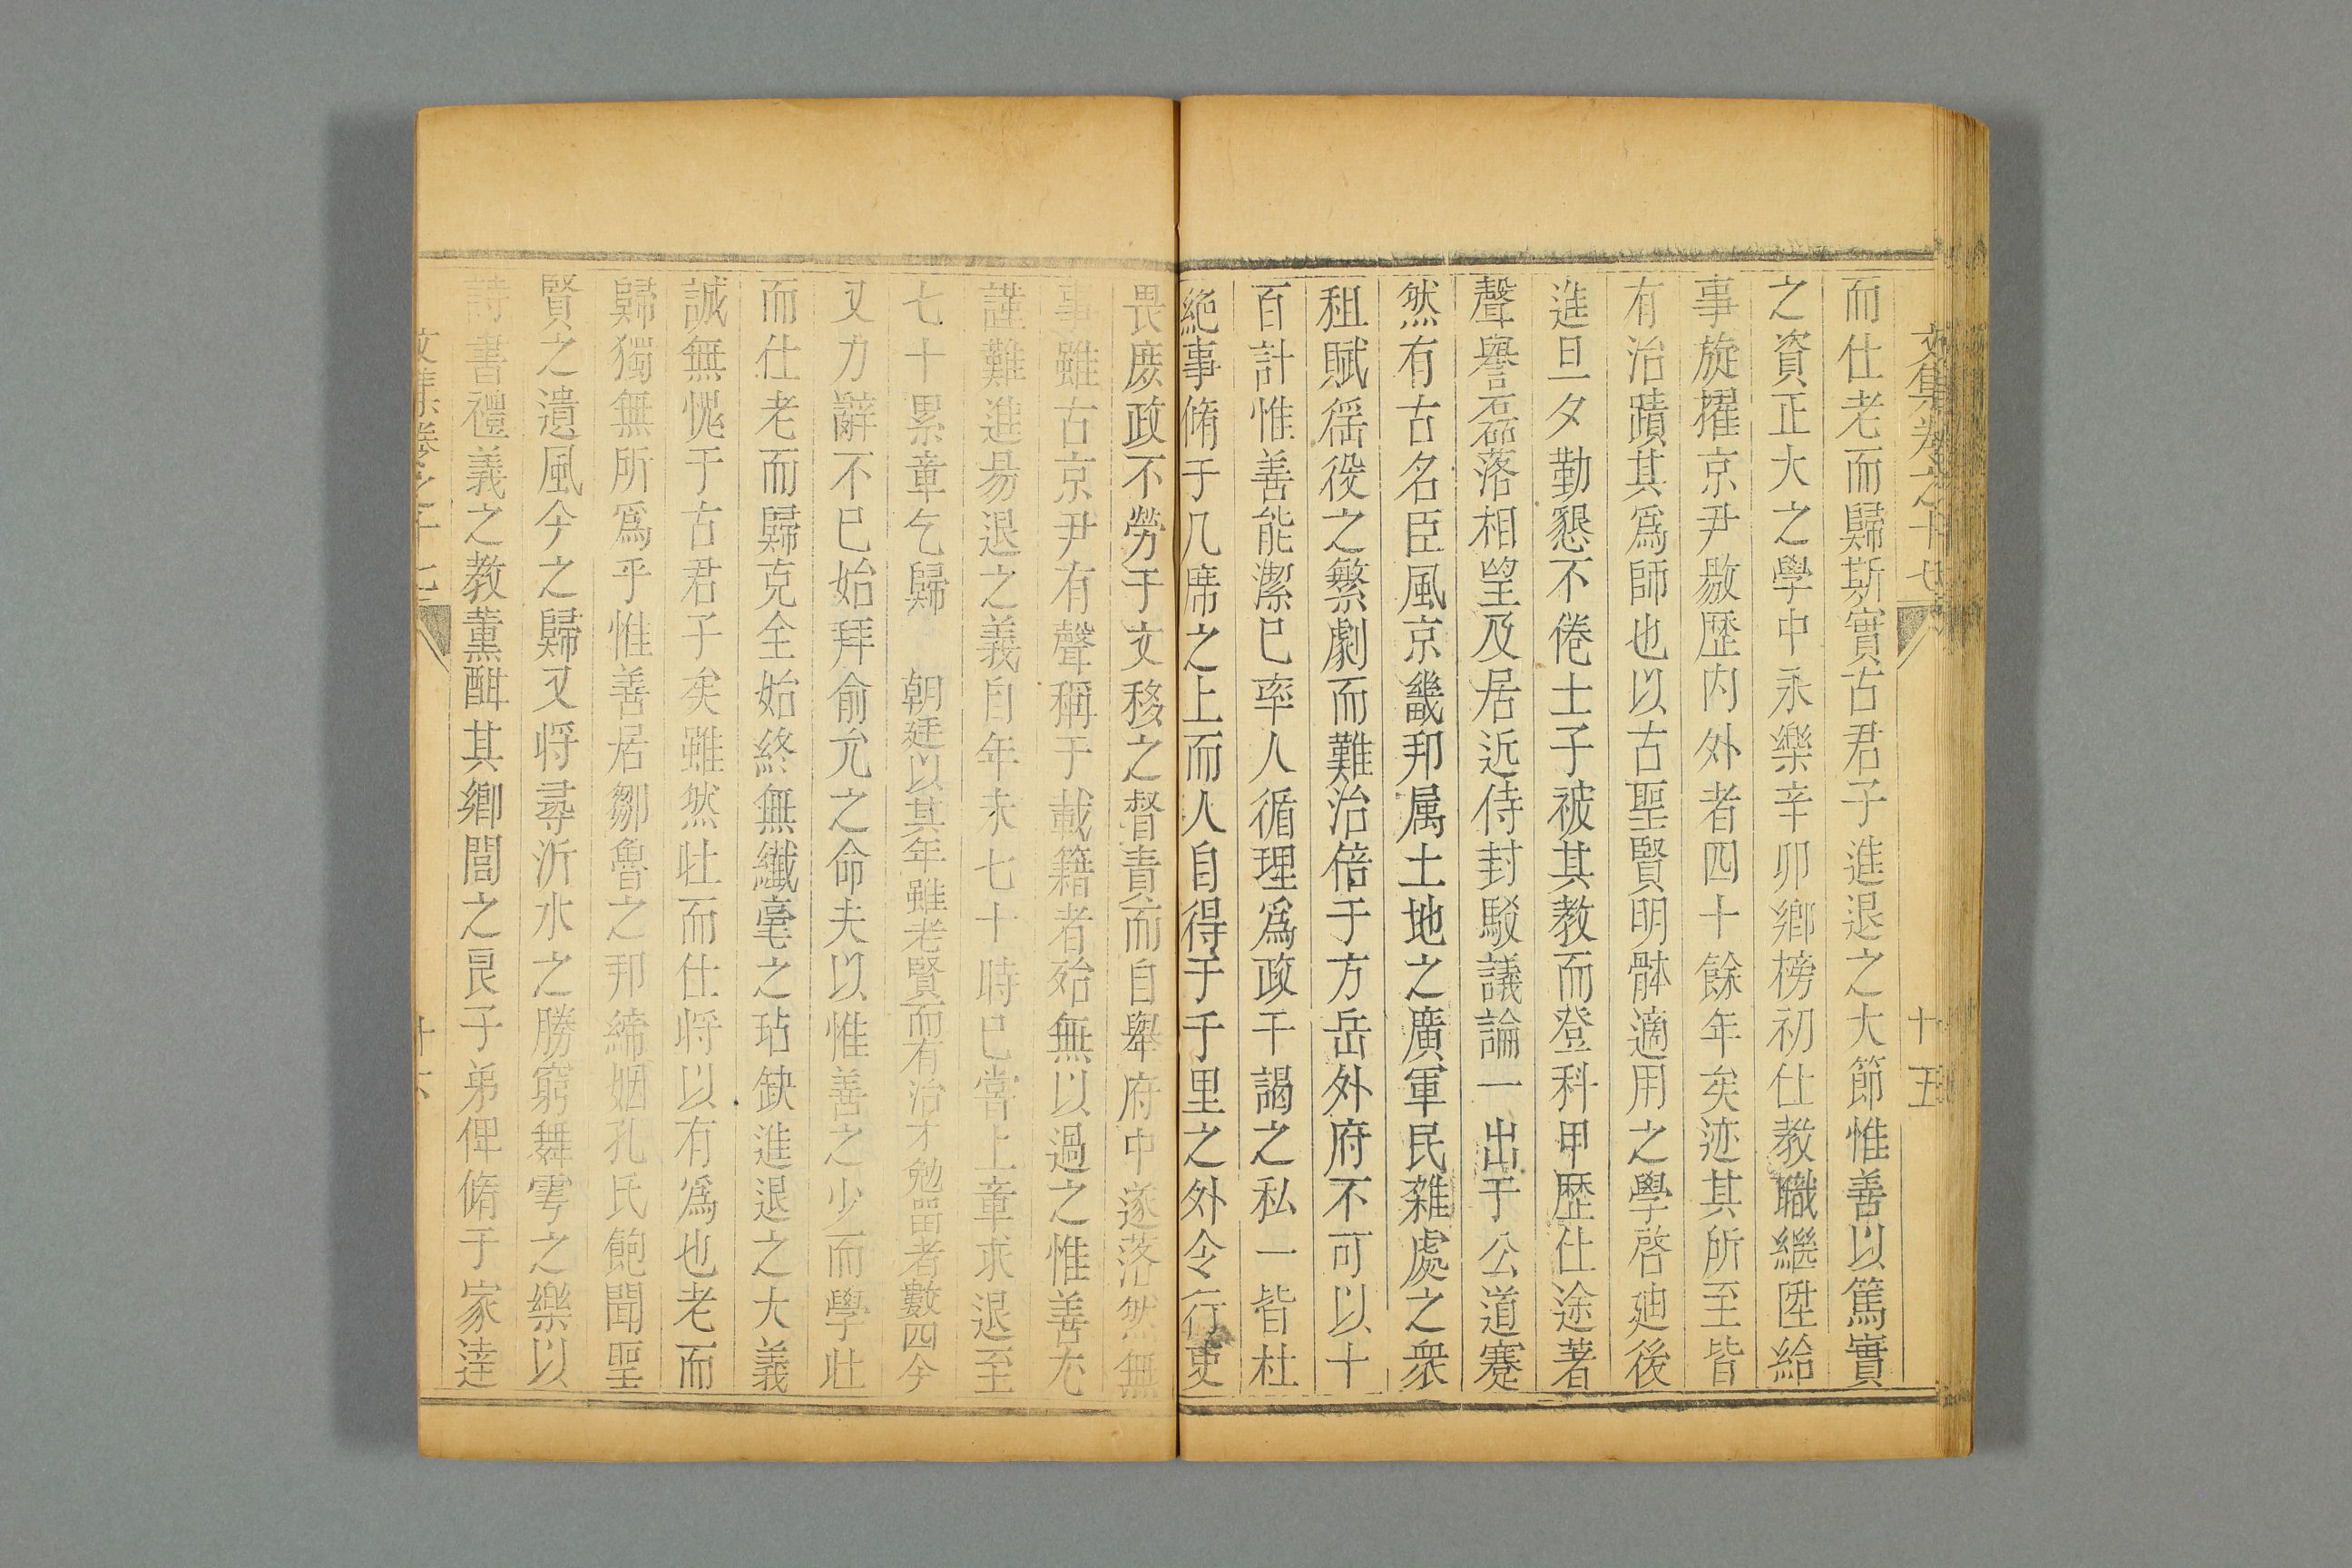 文集卷之十七 十五
而仕老而歸斯實古君子進退之大節惟善以篤實
之資正大之學中永樂辛卯鄉榜初仕教職繼陞給
事旋擢京尹敭歷内外者四十餘年矣迹其所至皆
有治蹟其爲師也以古聖賢明體適用之學啓廸後
進旦夕勤懇不倦士子被其教而登科甲歴仕途著
聲譽磊落相望及居近侍封駁議論一出于公道蹇
然有古名臣風京畿邦属土地之廣軍民雜處之衆
租賦徭役之繁劇而難治倍于方岳外府不可以十
百計惟善能潔已率人循理爲政干謁之私一皆杜
絶事脩于几席之上而人自得于千里之外令行吏
畏庶政不勞于文移之督責而自舉府中遂落然無
事雖古京尹有聲稱于載籍者殆無以過之惟善尤
謹難進易退之義自年未七十時已嘗上章求退至
七十累章乞歸 朝廷以其年雖老賢而有治才勉畱者數四今
又力辭不已始拜俞允之命夫以惟善之少而學壯
而仕老而歸克全始終無纖毫之玷缺進退之大義
誠無愧于古君子矣雖然壯而仕将以有爲也老而
歸獨無所爲乎惟善居鄒魯之邦締姻孔氏飽聞聖
賢之遺風今之歸又将尋沂水之勝窮舞雩之樂以
詩書禮義之教薰酣其鄉閭之良子弟俾脩于家達
文集卷之十七 十六